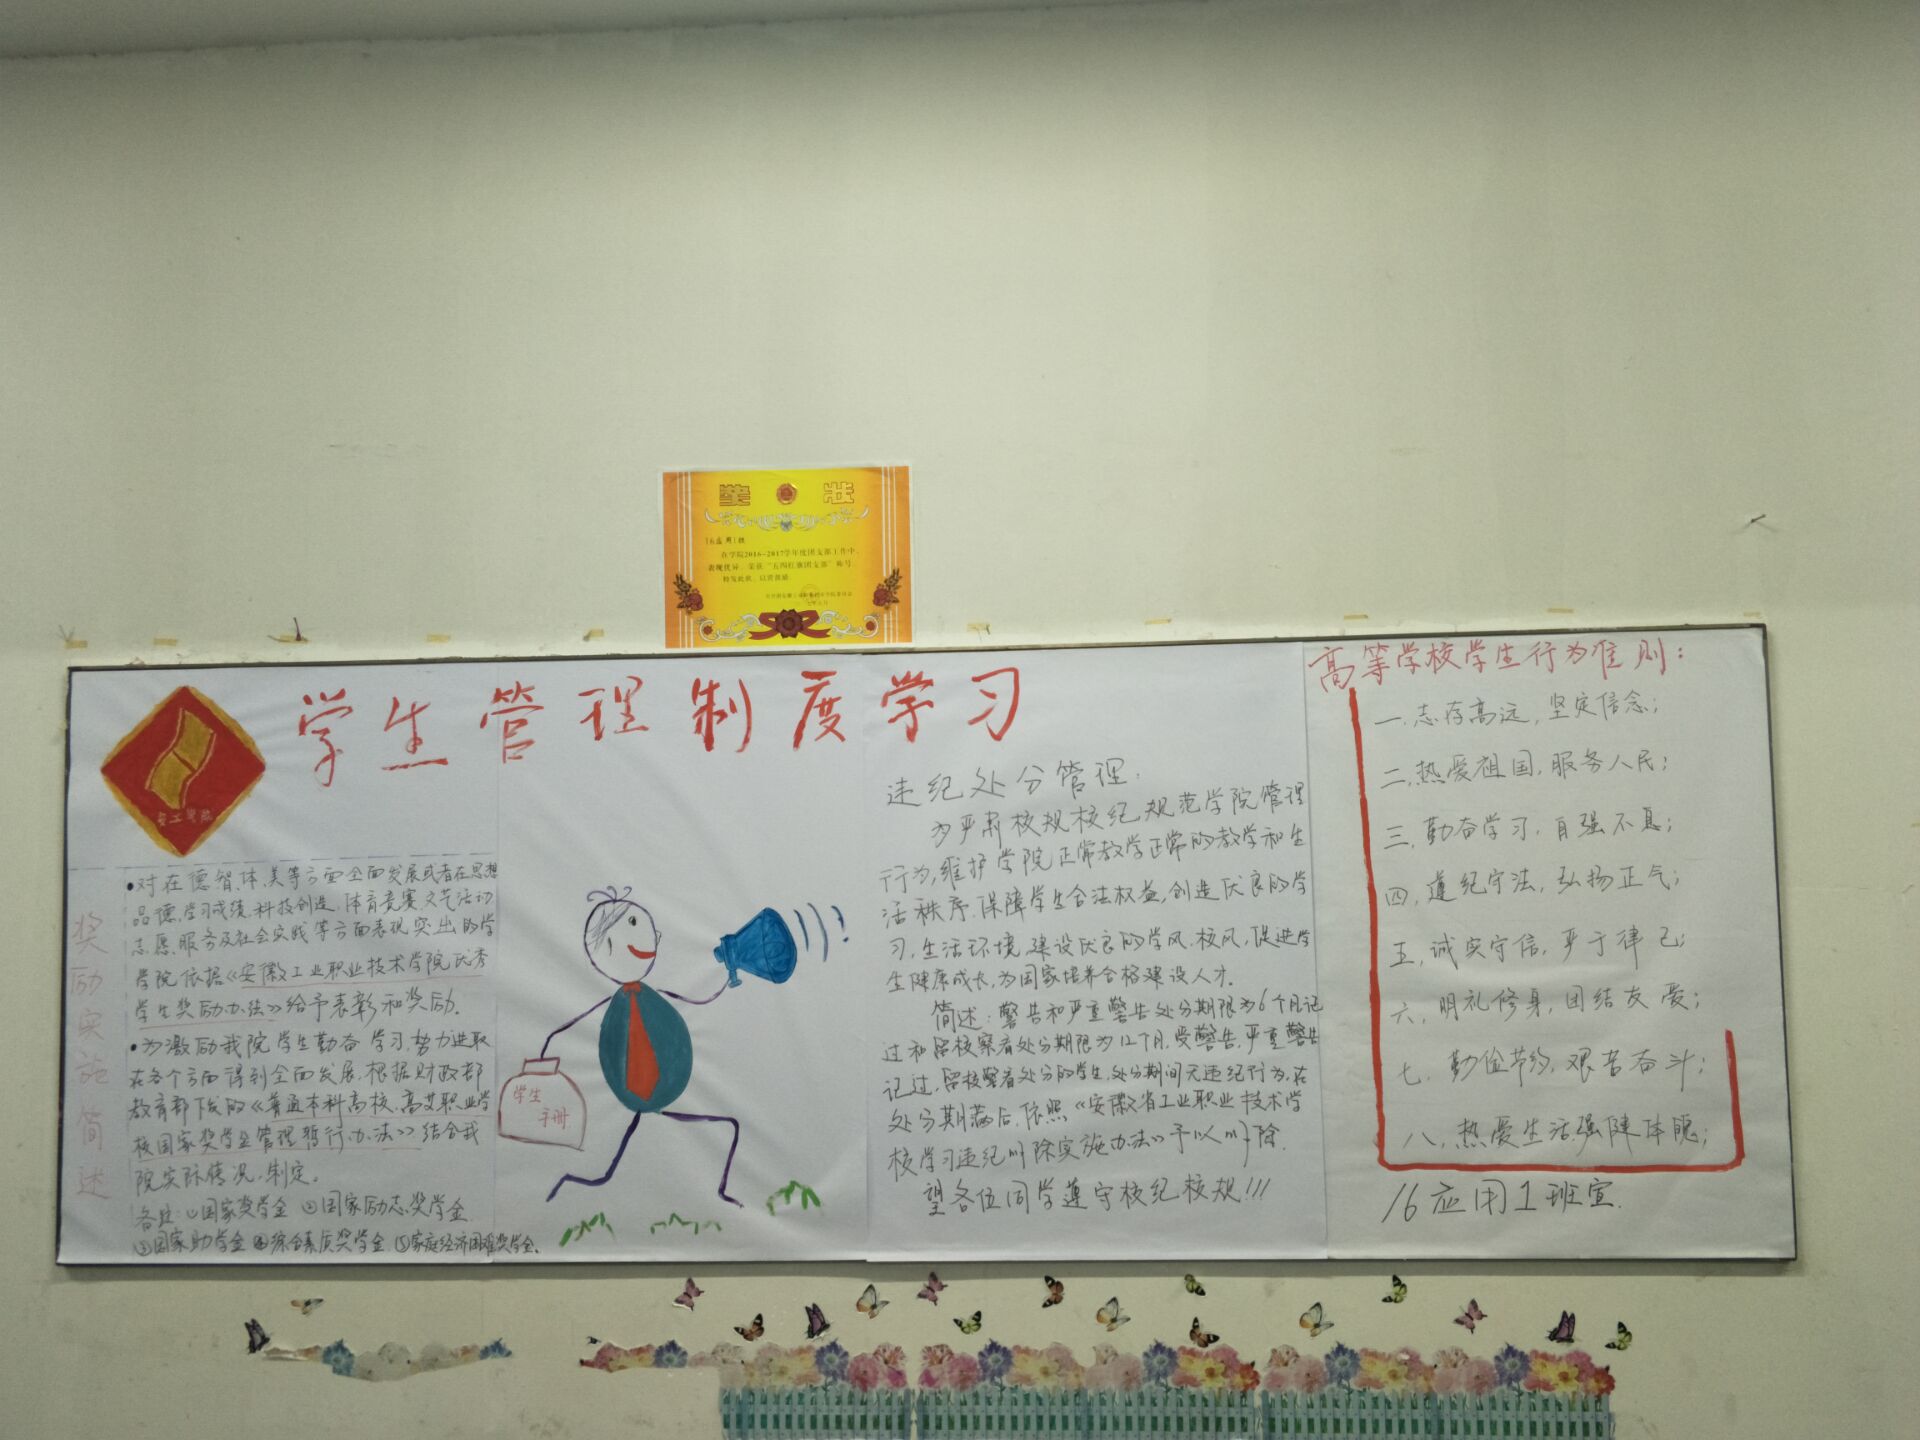 奖 状
16应用1班
在学院2016-2017学年度团支部工作中，
表现优异，荣获“五四红旗团支部”称号
特发此状，以资鼓励
学生管理制度学习
安工学院
奖励实施简述
•对在德、智、体、美等方面全面发展或者在思想
品德、学习成绩、科技创造、体育竞赛、文艺活动
志愿服务及社会实践等方面表现突出的学
学院依据《安徽工业职业技术学院优秀
学生奖励办法》给予表彰和奖励.
•为激励我院学生勤奋学习,努力进取
在各个方面得到全面发展,根据财政部
教育部下发的《普通本科高校、高等职业学
校国家奖学金管理暂行办法》结合我
院实际情况,制定。
①国家奖学金 ②国家励志奖学金
③国家助学金 ④综合素质奖学金 ⑤家庭经济困难奖学金.
学生
手册
违纪处分管理:
为严肃校规校纪,规范学院管理
行为,维护学院正常教学正常的教学和生
活秩序,保障学生合法权益,创造优良的学
习,生活环境,建设优良的学风、校风,促进学
生健康成长,为国家培养合格建设人才.
简述:警告和严重警告处分期限为6个月,记
过和留校察看处分期限为12个月,受警告,严重警告
记过,留校察看处分的学生,处分期间无违纪行为,在
处分期满后,依照《安徽省工业职业技术学
校学习违纪解除实施办法》予以解除.
望各位同学遵守校纪校规!!!
高等学校学生行为准则:
一.志存高远,坚定信念;
二.热爱祖国,服务人民;
三.勤奋学习,自强不息;
四.遵纪守法,弘扬正气;
五.诚实守信,严于律己;
六.明礼修身,团结友爱;
七.勤俭节约,艰苦奋斗;
八.热爱生活,强健体魄;
16应用1班宣.